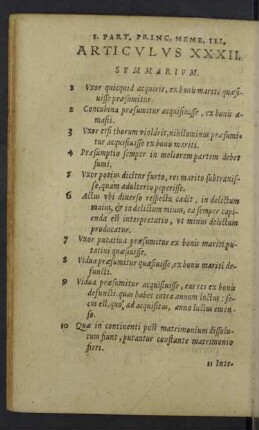 I. PART. PRINC. MEMB. III.
ARTICVLVS XXXII.
SVMMARIVM.
1 Vxor quicquid acquirit, ex bonis mariti quæsi-
uisse præsumitur.
2 Concubina præsumitur acquisiuisse, ex bonis a-
masii.
3 Vxor etsi thorum violárit, nihilominus præsumi-
tur acquisiuisse ex bonis mariti.
4 Præsumptio semper in meliorem partem debet
sumi.
5 Vxor potius dicitur furto, res marito subtraxis-
se, quam adulterio peperisse.
6 Actus vbi diuerso respectu cadit, in delictum
maius, & in delictum minus, ea semper capi-
enda est interpretatio, vt minus delictum
producatur.
7 Vxor putatiua præsumitur ex bonis mariti pu-
tatiui quæsiuisse.
8 Vidua præsumitur quæsiuisse, ex bonis mariti de-
functi.
9 Vidua præsumitur acquisiuisse, eas res ex bonis
defuncti, quas habet intra annum luctus: se-
cus est, quoad acquisitas, anno luctus emen-
so.
10 Quæ in continenti post matrimonium dissolu-
tum fiunt, putantur constante matrimonio
fieri.
11 Inte-